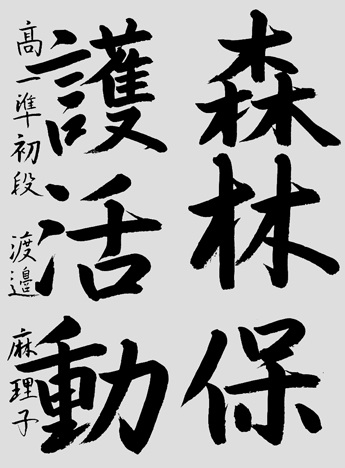 森林保
護活動
高一準初段 渡邉 麻理子